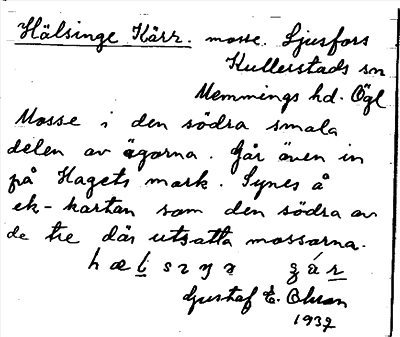 Hälsinge Kärr. mosse. Ljusfors
Kullerstads sn
Memmings hd. Ögl
Mosse i den södra smala
delen av ägorna. Går även in
på Hagets mark. Synes å
ek-kartan som den södra av
de tre där utsatta mossarna.
Gustaf E. Ohson
1937